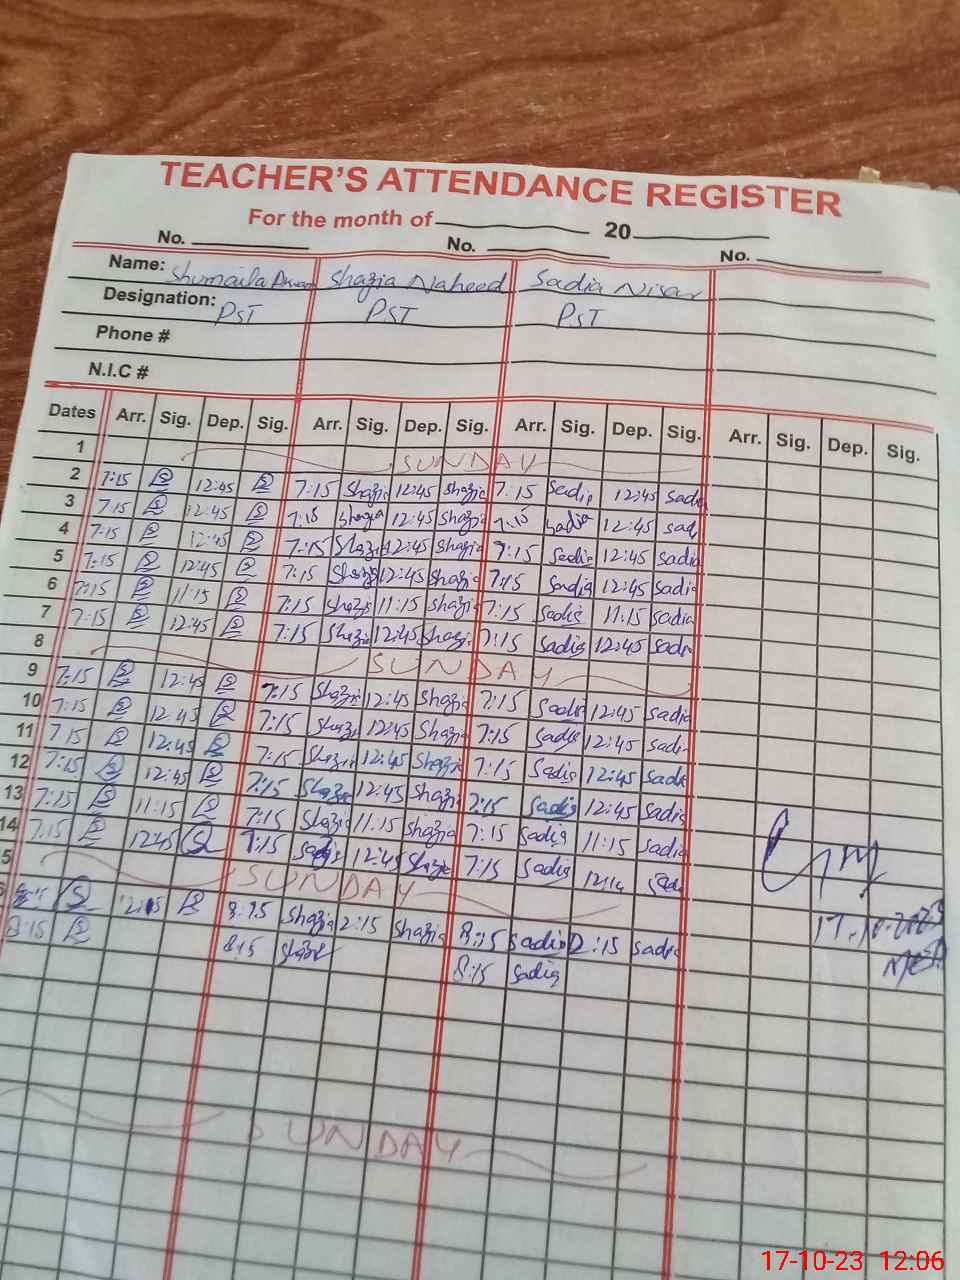 TEACHER'S ATTENDANCE REGISTER
For the month of 20
No. No. No.
Name: Shumaila Shazia Naheed Sadia Nisar
Designation: PST PST PST
Phone #
N.I.C #
Dates Arr. Sig. Dep. Sig. Arr. Sig. Dep. Sig. Arr. Sig. Dep. Sig. Arr. Sig. Dep. Sig.
1 SUNDAY
2 7:15 12:45 7:15 Shazia 12:45 Shazia 7:15 Sadia 12:45 Sadia
3 7:15 12:45 7:15 Shazia 12:45 Shazia 7:15 Sadia 12:45 Sad
4 7:15 12:45 7:15 Shazia 12:45 Shazia 7:15 Sadia 12:45 Sadia
5 7:15 12:45 7:15 Shazia 12:45 Shazia 7:15 Sadia 12:45 Sadia
6 7:15 11:15 7:15 Shazia 11:15 Shazia 7:15 Sadia 11:15 Sadia
7 7:15 12:45 7:15 Shazia 12:45 Shazia 7:15 Sadia 12:45 Sadia
8 SUNDAY
9 7:15 12:45 7:15 Shazia 12:45 Shazia 7:15 Sadia 12:45 Sadia
10 7:15 12:45 7:15 Shazia 12:45 Shazia 7:15 Sadia 12:45 Sadia
11 7:15 12:45 7:15 Shazia 12:45 Shazia 7:15 Sadia 12:45 Sadia
12 7:15 12:45 7:15 Shazia 12:45 Shazia 7:15 Sadia 12:45 Sadia
13 7:15 11:15 7:15 Shazia 11:15 Shazia 7:15 Sadia 11:15 Sadia
14 7:15 12:45 7:15 12:45 Shazia 7:15 Sadia 12:14 Sadi
5 SUNDAY
8:15 Shazia 2:15 Shazia 8:15 Sadia 2:15 Sadia
8:15 8:15 Shazia 8:15 Sadia
17-10-2023
SUNDAY
17-10-23 12:06